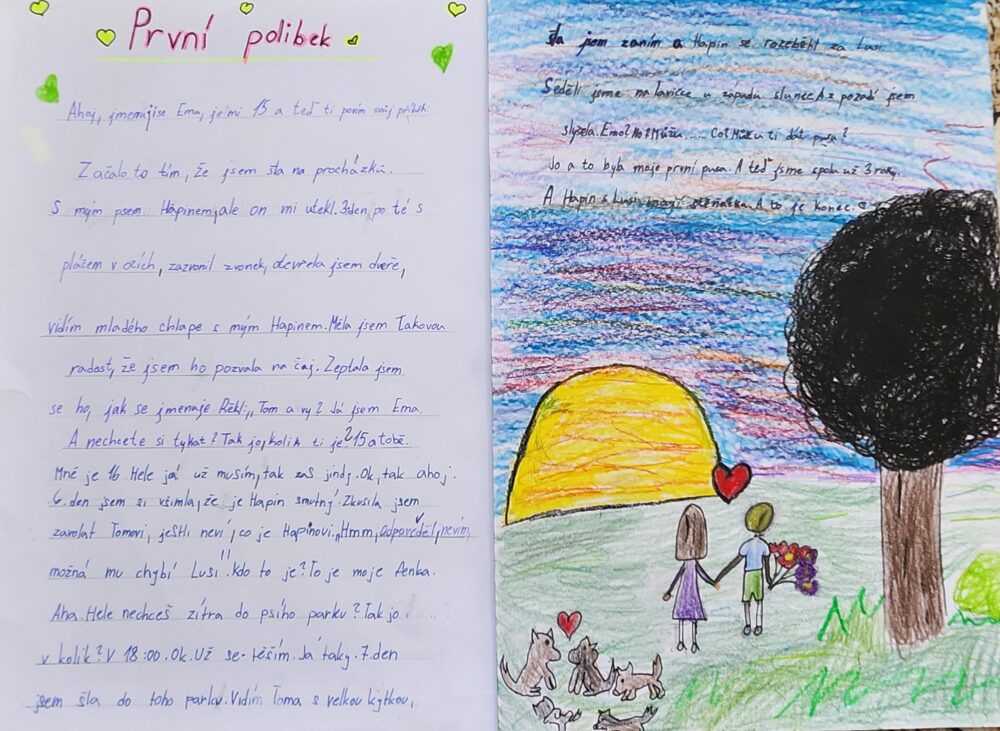 První polibek
Ahoj, jmenuji se Ema, je mi 15 a teď ti povím svůj příběh.
Začalo to tím, že jsem šla na procházků.
S mým psem Hapinem, ale on mi utekl. 3.den, po té s
pláčem v očích, zazvonil zvonek, otevřela jsem dveře,
vidím mladého chlape s mým Hapinem. Měla jsem takovou
radost, že jsem ho pozvala na čaj. Zeptala jsem
se ho, jak se jmenuje. Řekl: „Tom a vy? Já jsem Ema.
A nechcete si tykat? Tak jo, kolik ti je? 15 a tobě.
Mně je 16. Hele já už musím, tak zas jindy. Ok, tak ahoj.
6. den jsem si všimla, že je Hapin smutný. Zkusila jsem
zavolat Tomovi, jestli neví, co je Hapinovi. „Hmm, odpověděl, nevím,
možná mu chybí Lusi. Kdo to je? To je moje fenka.
Aha. Hele nechceš zítra do psího parku? Tak jo
v kolik? V 18:00. Ok. Už se těším. Já taky. 7. den
jsem šla do toho parku. Vidím Toma s velkou kytkou,
šla jsem zaním a Hapin se rozeběhl za Lusi.
Seděli jsme na lavičce u západu slunce A z pozadí jsem
slyšela. Emo? No? Můžu..... Co? Můžu ti dát pusu?
Jo a to byla moje první pusa. A teď jsme spolu už 3 roky.
A Hapin s Lusi mají štěňátka. A to je konec.